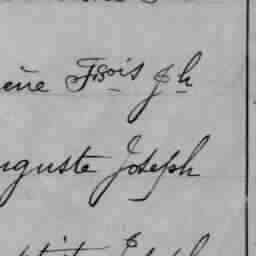 ène Frois Jh
uguste Joseph